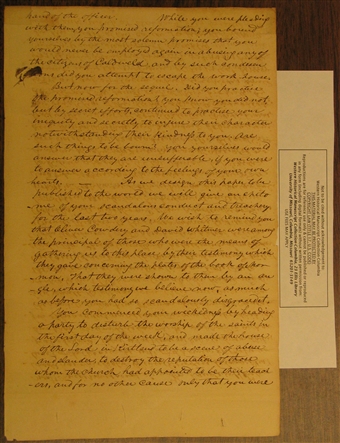 hand of the officer. While you were pleading
with them, you promised reformation, you bound
yourselves by the most solemn promises that you
would never be employed again in abusing any of
the citizens of Caldwell and by such
means did you attempt to escape the work house.
But now for the sequel. Did you practice
the promised reformation? you know you did not
but by secret efforts continued to practice your
iniquity and secretly to injure their character
notwithstanding their kindness to you. Are
such things to be borne? you yourselves would
answer that they are insufferable, if you were
to answer according to the feelings of your own
hearts. As we design this paper to be
published to the world we will give an
of your scandalous conduct and treachery
for the last two years. We wish to remind you
that Oliver Cowdery and David Whitmer were among
the principal of those who were the means of
gathering us to this place, by their testimony which
they gave concerning the plates of the book of Mor-
mon, That they were shown to them by an an-
gle, which testimony we believe now, as much
as before you had so scandalously disgraced it.
You commenced your wickedness by heading
a party to disturb the worship of the saints in
the first day of the week, and made the house
of the Lord in Kirtland to be a scene of abuse
and slander, to destroy the reputation of those
whom the church had appointed to be their teach-
ers, and for no other cause only that you were